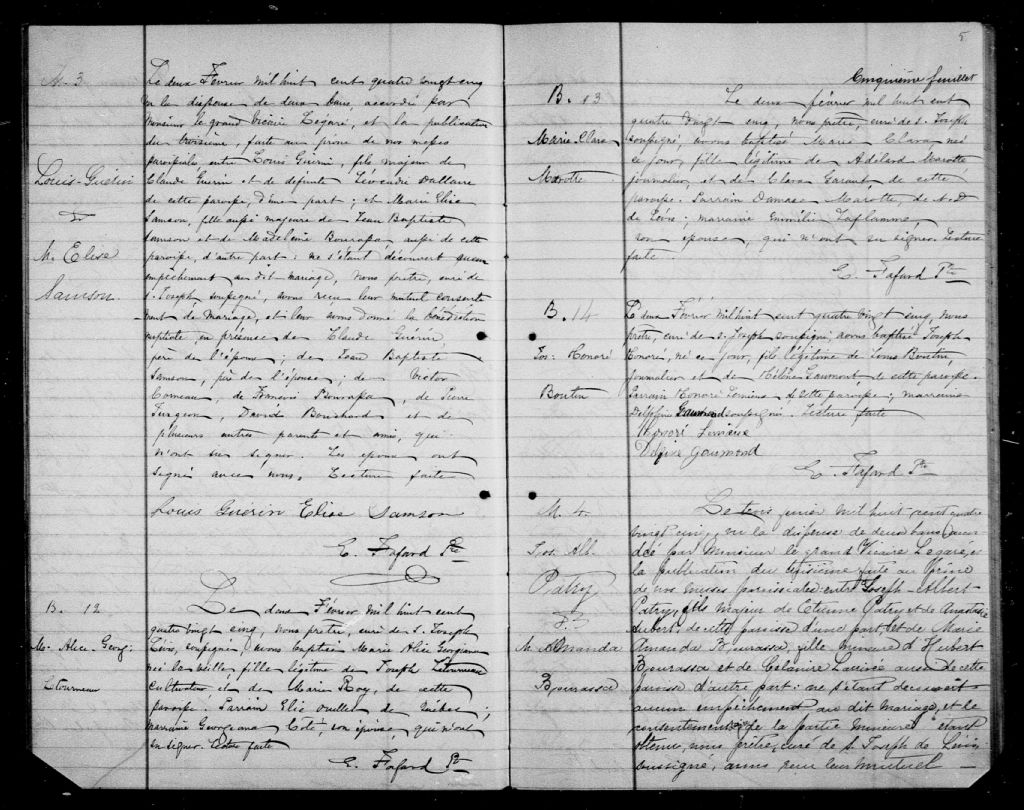 M. 3
Louis-Guérin
&
M. Elise
Samson
Le deux Février mil huit cent quatre vingt cinq
vu la dispense de deux bans, accordée par
Monsieur le grand Vicaire Legaré, et la publication
du troisième, faite au prône de nos messes
paroissiale entre Louis Guérin, fils majeur de
Claude Guérin et de défunte Léocadie Dallaire
de cette paroisse, d'une part; et Marie Elise
Samson, fille aussi majeure de Jean Baptiste
Samson et de Madeleine Bourassa aussi de cette
paroisse, d'autre part: ne s'étant découvert aucun
empêchement au dit mariage, Nous prêtre, curé de
S. Joseph soussigné, avons reçu leur mutuel consente
ment de mariage, et leur avons donné la bénédiction
nuptiale, en présence de Claude Guérin,
père de l'époux; de Jean Baptiste
Samson, père de l'épouse; de Victor
Comeau, de François Bourassa, de Pierre
Turgeon, David Bouchard et de
plusieurs autres parents et amis, qui
n'ont su signer. Les époux ont
signé avec nous. Lecture faite
Louis Guérin Elise Samson
E. Fafard Ptre
B. 12
M. Alice-Georg.
Létourneau
Le deux Février mil huit cent
quatre vingt cinq, Nous prêtre, curé de S. Joseph
Lévis, soussigné, avons baptisé Marie Alice Georgiana
née la veille, fille légitime de Joseph Létourneau
cultivateur et de Marie Roy, de cette
paroisse. Parrain Elie Ouellet de Québec;
marraine Georgiana Coté, son épouse, qui n'ont
su signer. Lecture faite
E. Fafard Ptre
5
Cinquième feuillet
B. 13
Marie-Clara
Marotte
Le deux février mil huit cent
quatre vingt cinq, nous prêtre, curé de S. Joseph
soussigné, avons baptisé Marie Clara née
ce jour, fille légitime de Adélard Marotte
journalier, et de Clara Garant de cette
paroisse. Parrain Damase Marotte, de N. D
de Lévis; marraine Emmélie Laflamme,
son épouse, qui n'ont su signer. Lecture
faite
E. Fafard Ptre
B. 14
Jos: Honoré
Boutin
Le deux Février mil huit cent quatre vingt cinq, nous
prêtre, curé de S. Joseph soussigné avons baptisé Joseph
Honoré, né ce jour, fils légitime de Louis Boutin,
journalier et de Hélène Gaumont, de cette paroisse.
Parrain Honoré Lemieux de cette paroisse; marraine
Delphine Gaumond soussignés. Lecture faite
Honoré Lemieux
Delfise Gaumond
E. Fafard Ptre
M. 4.
Jos. Alb.
Patry
&
M. Amanda
Bourassa
Le trois février mil huit cent quatre
vingt cinq, vu la dispense de deux bans accor
dée par Monsieur le grand Vicaire Legaré, et
la publication du troisième faite au prône
de nos messes paroissiales entre Joseph-Albert
Patry, fils majeur de Etienne Patry et de Anastasie
Aubert, de cette paroisse d'une part, et de Marie
Amanda Bourassa, fille mineure d'Hubert
Bourassa et de Célanire aussi de cette
paroisse d'autre part: ne s'étant découvert
aucun empêchement au dit mariage, et le
consentement de la partie mineure étant
obtenu, nous prêtre, curé de S. Joseph de Lévis
soussigné, avons reçu leur mutuel